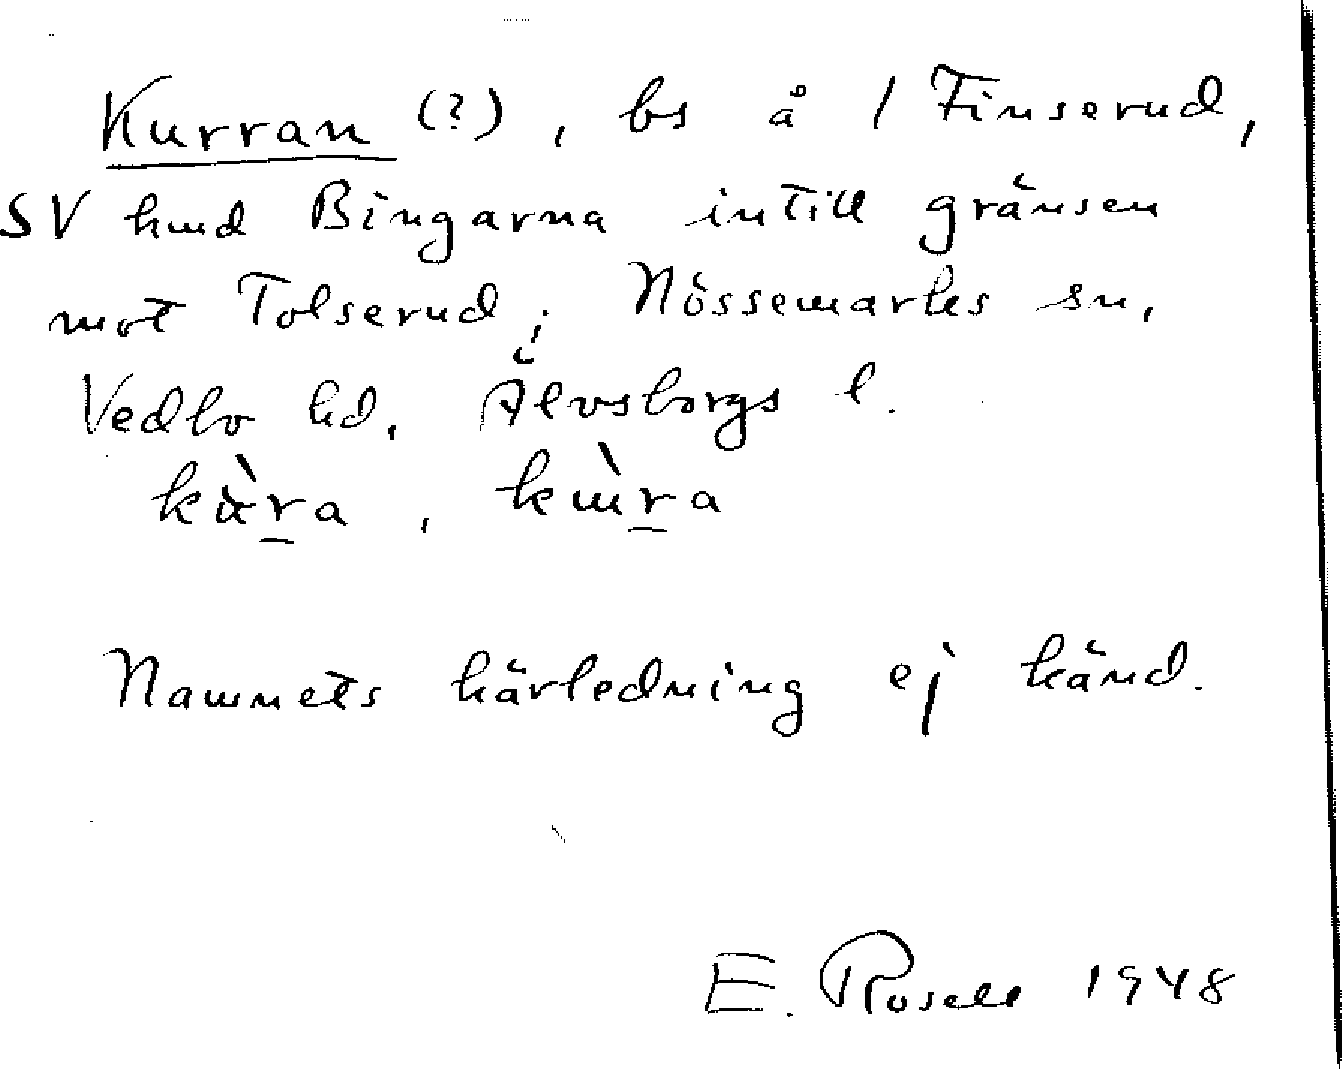 Kurran (?), bs å 1 Finserud,
SV hmd Bingarna intill gränsen
mot Tolserud, Nössemarks sn,
Vedbo hd, Älvsborgs l.
kɯ̀ra
Namnets härledning ej känd.
E. Rosell 1948